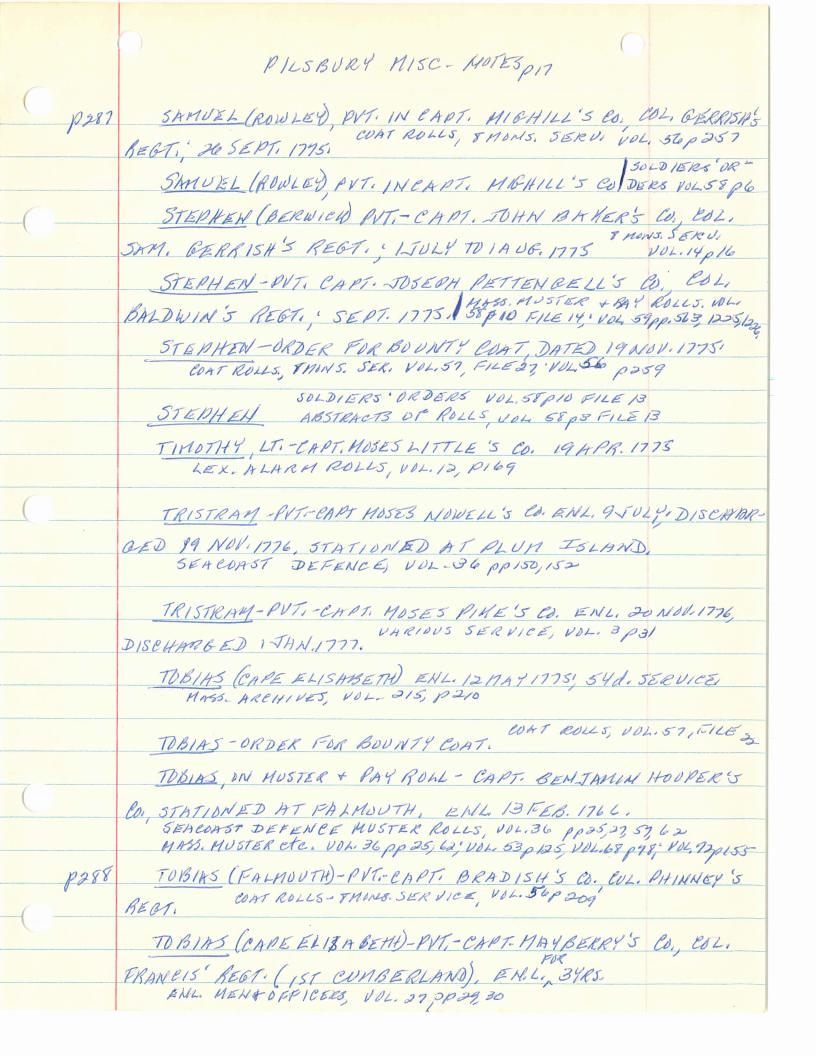 PILSBURY MISC- NOTES p17
p287 SAMUEL (ROWLEY), PVT. IN CAPT. MIGHILL'S CO, COL. GERRISH'S
COAT ROLLS, 8 MONS. SERV. VOL. 56 p257
REGT.; 26 SEPT. 1775.
SAMUEL (ROWLEY), PVT. IN CAPT. MIGHILL'S CO SOLDIERS' OR-
DERS VOL 58 p6
STEPHEN (BERWICK) PVT.-CAPT. JOHN BAKER'S CO, COL.
SAM. GERRISH'S REGT.; 1 JULY TO 1 AUG. 1775 8 MONS. SERV.
VOL. 14 p16
STEPHEN-PVT. CAPT. JOSEPH PETTENGELL'S CO, COL.
BALDWIN'S REGT.; SEPT. 1775. MASS. MUSTER + PAY ROLLS. VOL.
58 p10 FILE 14; VOL 59 pp. 563, 1225, 1226.
STEPHEN-ORDER FOR BOUNTY COAT, DATED 19 NOV. 1775
COAT ROLLS, 8 MONS. SER. VOL. 57, FILE 27; VOL 56 p259
SOLDIERS' ORDERS VOL. 58 p10 FILE 13
STEPHEN ABSTRACTS OF ROLLS, VOL 58 p3 FILE 13
TIMOTHY, LT.-CAPT. MOSES LITTLE'S CO. 19 APR. 1775
LEX. ALARM ROLLS, VOL. 12, p169
TRISTRAM-PVT-CAPT MOSES NOWELL'S CO. ENL. 9 JULY, DISCHAR-
GED 19 NOV. 1776, STATIONED AT PLUM ISLAND.
SEACOAST DEFENCE, VOL-36 pp150,152
TRISTRAM-PVT.-CAPT. MOSES PIKE'S CO. ENL. 20 NOV. 1776,
VARIOUS SERVICE, VOL. 3 p31
DISCHARGED 1 JAN. 1777.
TOBIAS (CAPE ELISABETH) ENL. 12 MAY 1775, 54d. SERVICE
MASS. ARCHIVES, VOL. 215, p210
COAT ROLLS, VOL. 57, FILE 22
TOBIAS-ORDER FOR BOUNTY COAT.
TOBIAS, ON MUSTER + PAY ROLL-CAPT. BENJAMIN HOOPER'S
CO, STATIONED AT FALMOUTH, ENL 13 FEB. 1766.
SEACOAST DEFENCE MUSTER ROLLS, VOL. 36 pp25,27,57,62
MASS. MUSTER etc. VOL. 36 pp 25, 62; VOL. 53 p125, VOL. 68 p78; VOL. 72 p155
p288 TOBIAS (FALMOUTH)-PVT.-CAPT. BRADISH'S CO, COL. PHINNEY'S
REGT. COAT ROLLS-8 MONS. SERVICE, VOL. 56 p 209
TOBIAS (CAPE ELISABETH)-PVT.-CAPT. MAYBERRY'S CO., COL.
FRANCIS' REGT. (1ST CUMBERLAND), ENL. FOR 3 YRS.
ENL. MEN & OFFICERS, VOL. 27, pp 29, 30